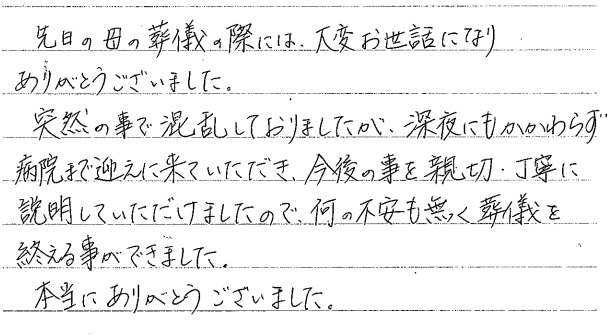 先日の母の葬儀の際には、大変お世話になり
ありがとうございました。
突然の事で混乱しておりましたが、深夜にもかかわらず
病院まで迎えに来ていただき、今後の事を親切・丁寧に
説明していただけましたので、何の不安も無く葬儀を
終える事ができました。
本当にありがとうございました。